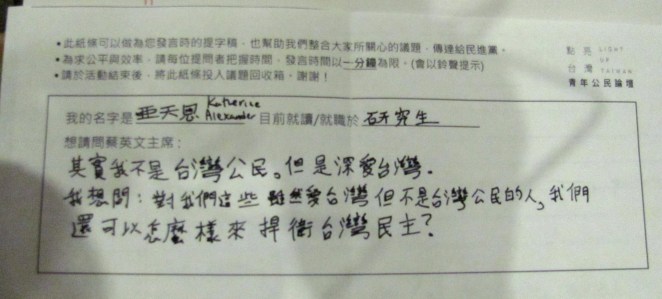 •此紙條可以做為您發言時的提字稿，也幫助我們整合大家所關心的議題，傳達給民進黨。
•為求公平與效率，請每位提問者把握時間，發言時間以一分鐘為限。(會以鈴聲提示)
•請於活動結束後，將此紙條投入議題回收箱。謝謝！
點亮 LIGHT UP
台灣 TAIWAN
青年公民論壇
我的名字是 亜天恩 Katherine Alexander 目前就讀/就職於 研究生
想請問蔡英文主席：
其實我不是台灣公民。但是深愛台灣。
我想問：對我們這些雖然愛台灣但不是台灣公民的人，我們
還可以怎麼樣來捍衛台灣民主？